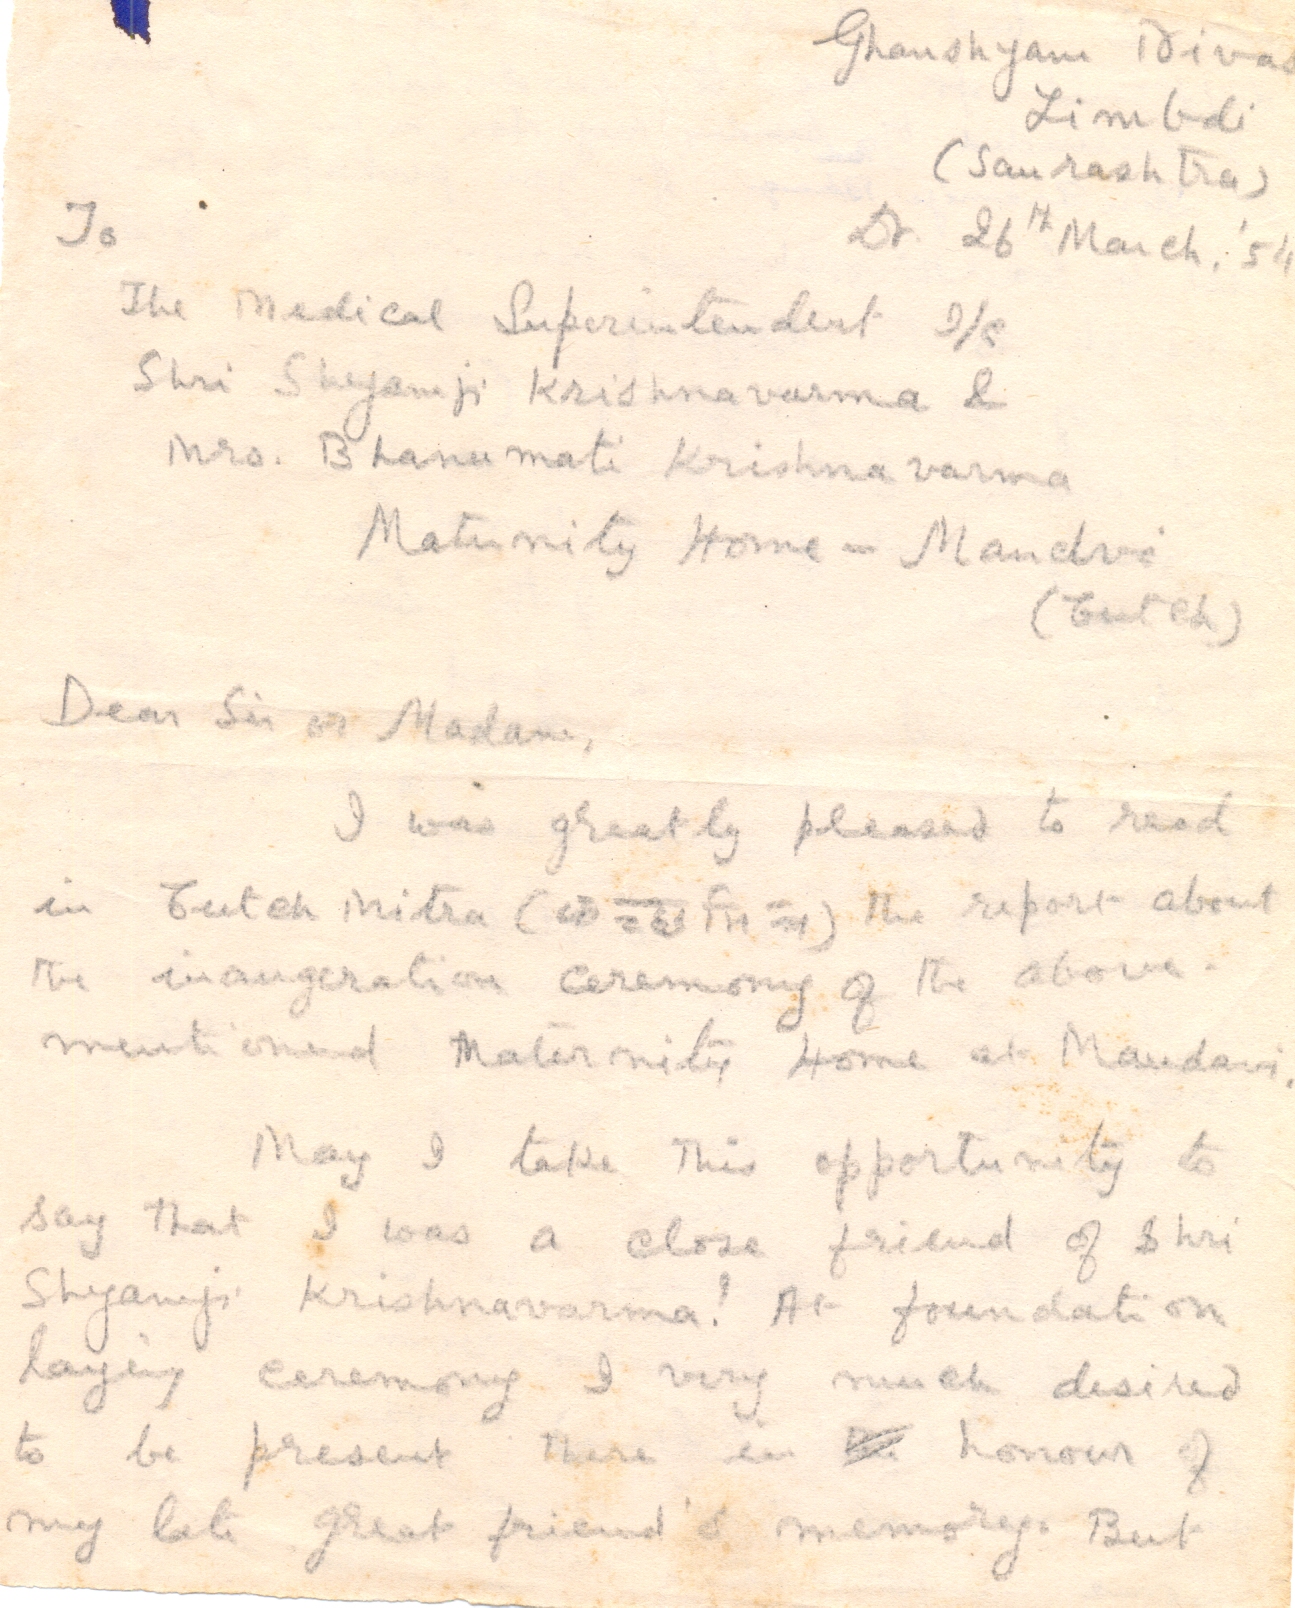 Ghanshyam Nivas
Limbdi
(Saurashtra)
Dt. 26th March, '54
To
The Medical Superintendent I/c
Shri Shyamji Krishnavarma &
Mrs. Bhanumati Krishnavarma
Maternity Home - Mandvi
(Cutch)
Dear Sir or Madam,
I was greatly pleased to read
in Cutch Mitra () the report about
the inaugeration ceremony of the above-
mentioned Maternity Home at Mandavi.
May I take this opportunity to
say that I was a close friend of Shri
Shyamji Krishnavarma! At foundation
laying ceremony I very much desired
to be present there in honour of
my late great friend's memory. But